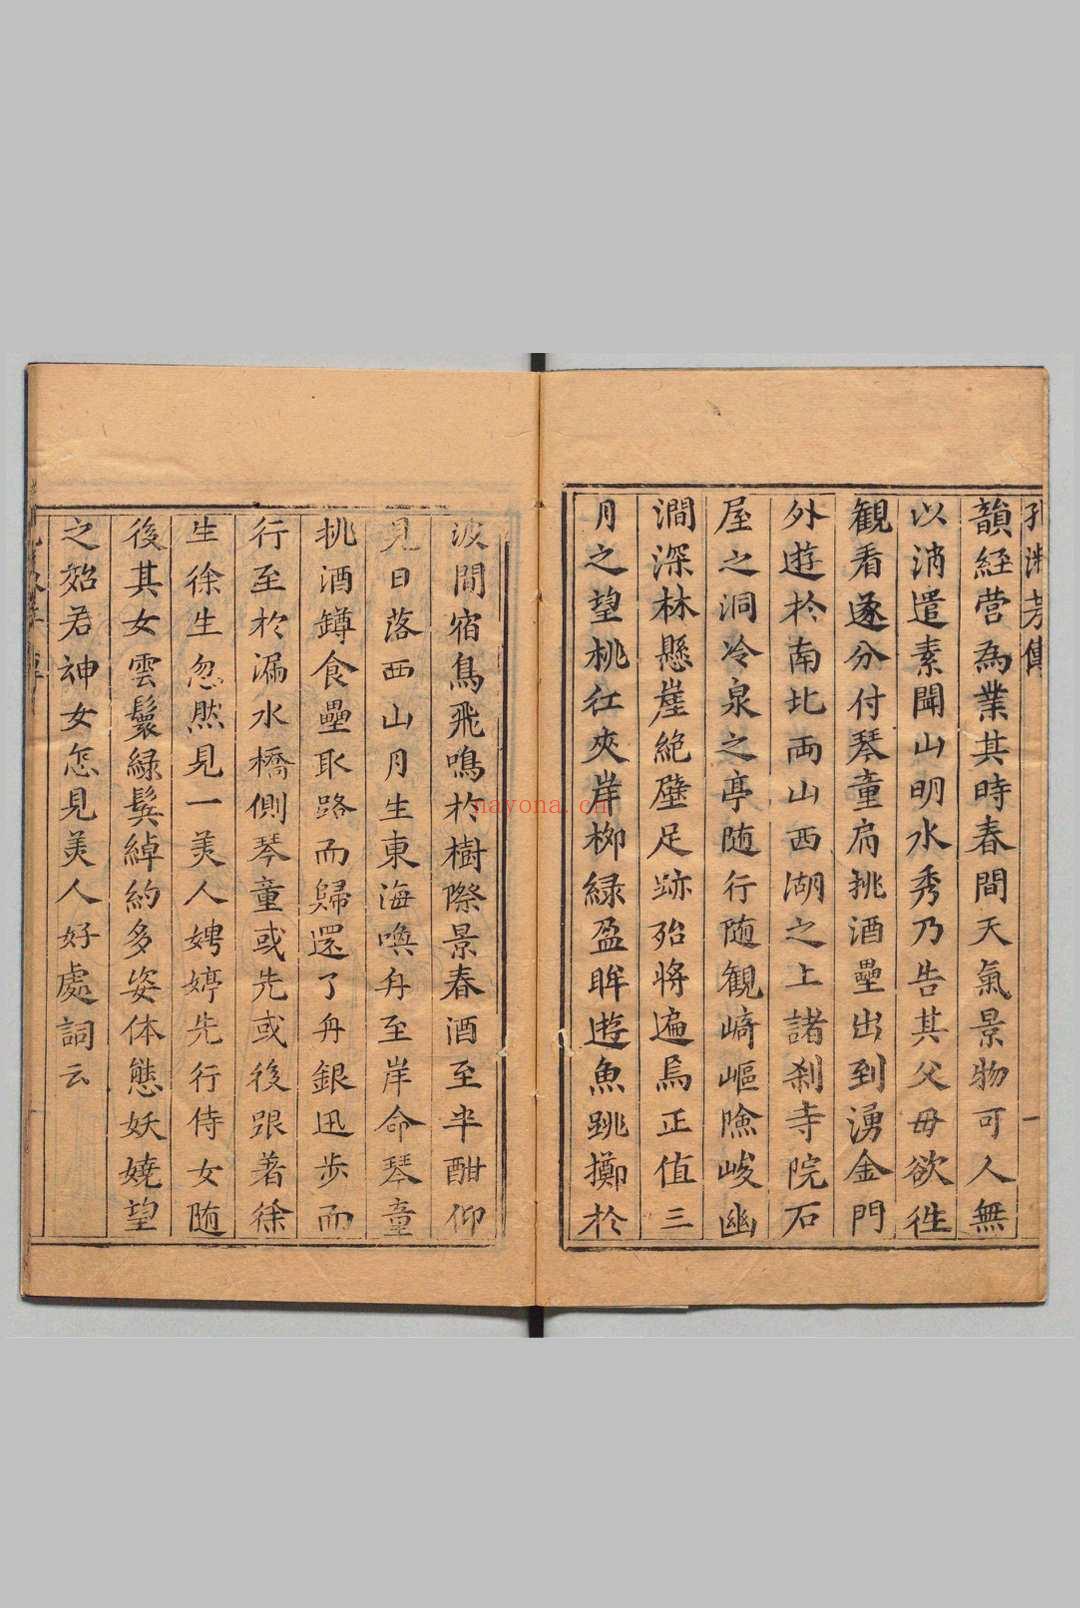 孔淑芳傳
一
韻經营為業其時春間天氣景物可人無
以消遣素聞山明水秀乃告其父毋欲徃
観看遂分付琴童肩挑酒罍出到湧金門
外遊扵南北両山西湖之上諸刹寺院石
屋之洞冷泉之亭随行随観﨑嶇險峻幽
澗深林懸崖絶壁足跡殆將遍焉正值三
月之望桃红夾岸栁緑盈眸遊魚跳擲扵
波間宿鳥飛鳴扵樹際景春酒至半酣仰
見日落西山月生東海喚舟至岸命琴童
挑酒罇食罍取路而歸還了舟銀迅步而
行至扵漏水橋側琴童或先或後跟着徐
生徐生忽然見一美人娉婷先行侍女随
後其女雲鬟緑鬓綽約多姿体態妖嬈望
之如若神女怎見美人好處詞云
nayona.cn